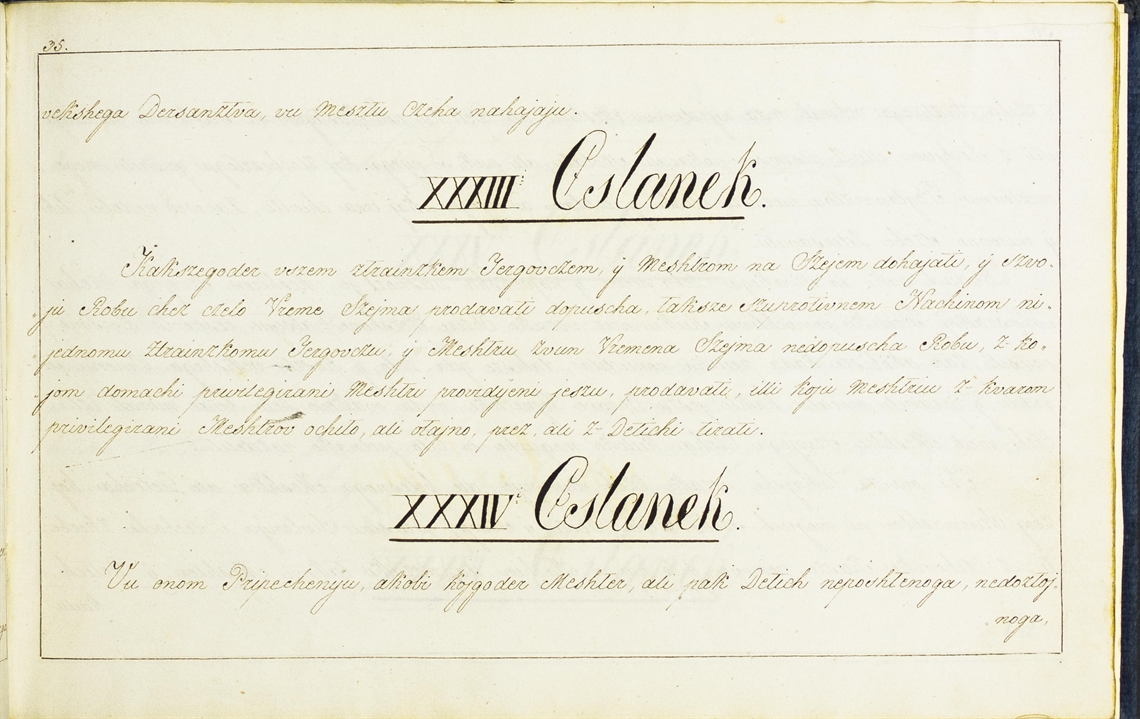 35.
vekshega Dersanztva, vu Mesztu Czeha nahajaju.
XXXIII: Cslanek.
Kakszegoder vszem ztrainzkem Tergovczem, ÿ Meshtrom na Szejem dohajati, ÿ Szvo-
ju Robu chez czelo Vreme Szejma prodavati dopuscha, taksze szuprotivnem Nachinom ni-
jednomu ztrainzkomu Tergovczu, ÿ Meshtru zvun Vremena Szejma nedopuscha Robu, z-ko-
jom domachi privilegirani Meshtri providjeni jeszu, prodavati, illi koju Meshtriu z-kvarom
privilegirani Meshtrov ochito, ali otajno, prez, ali z-Detichi tirati.
XXXIV: Cslanek.
Vu onom Pripechenyu, akobi kojgoder Meshter, ali pak Detich neposhtenoga, nedoztoj-
noga,